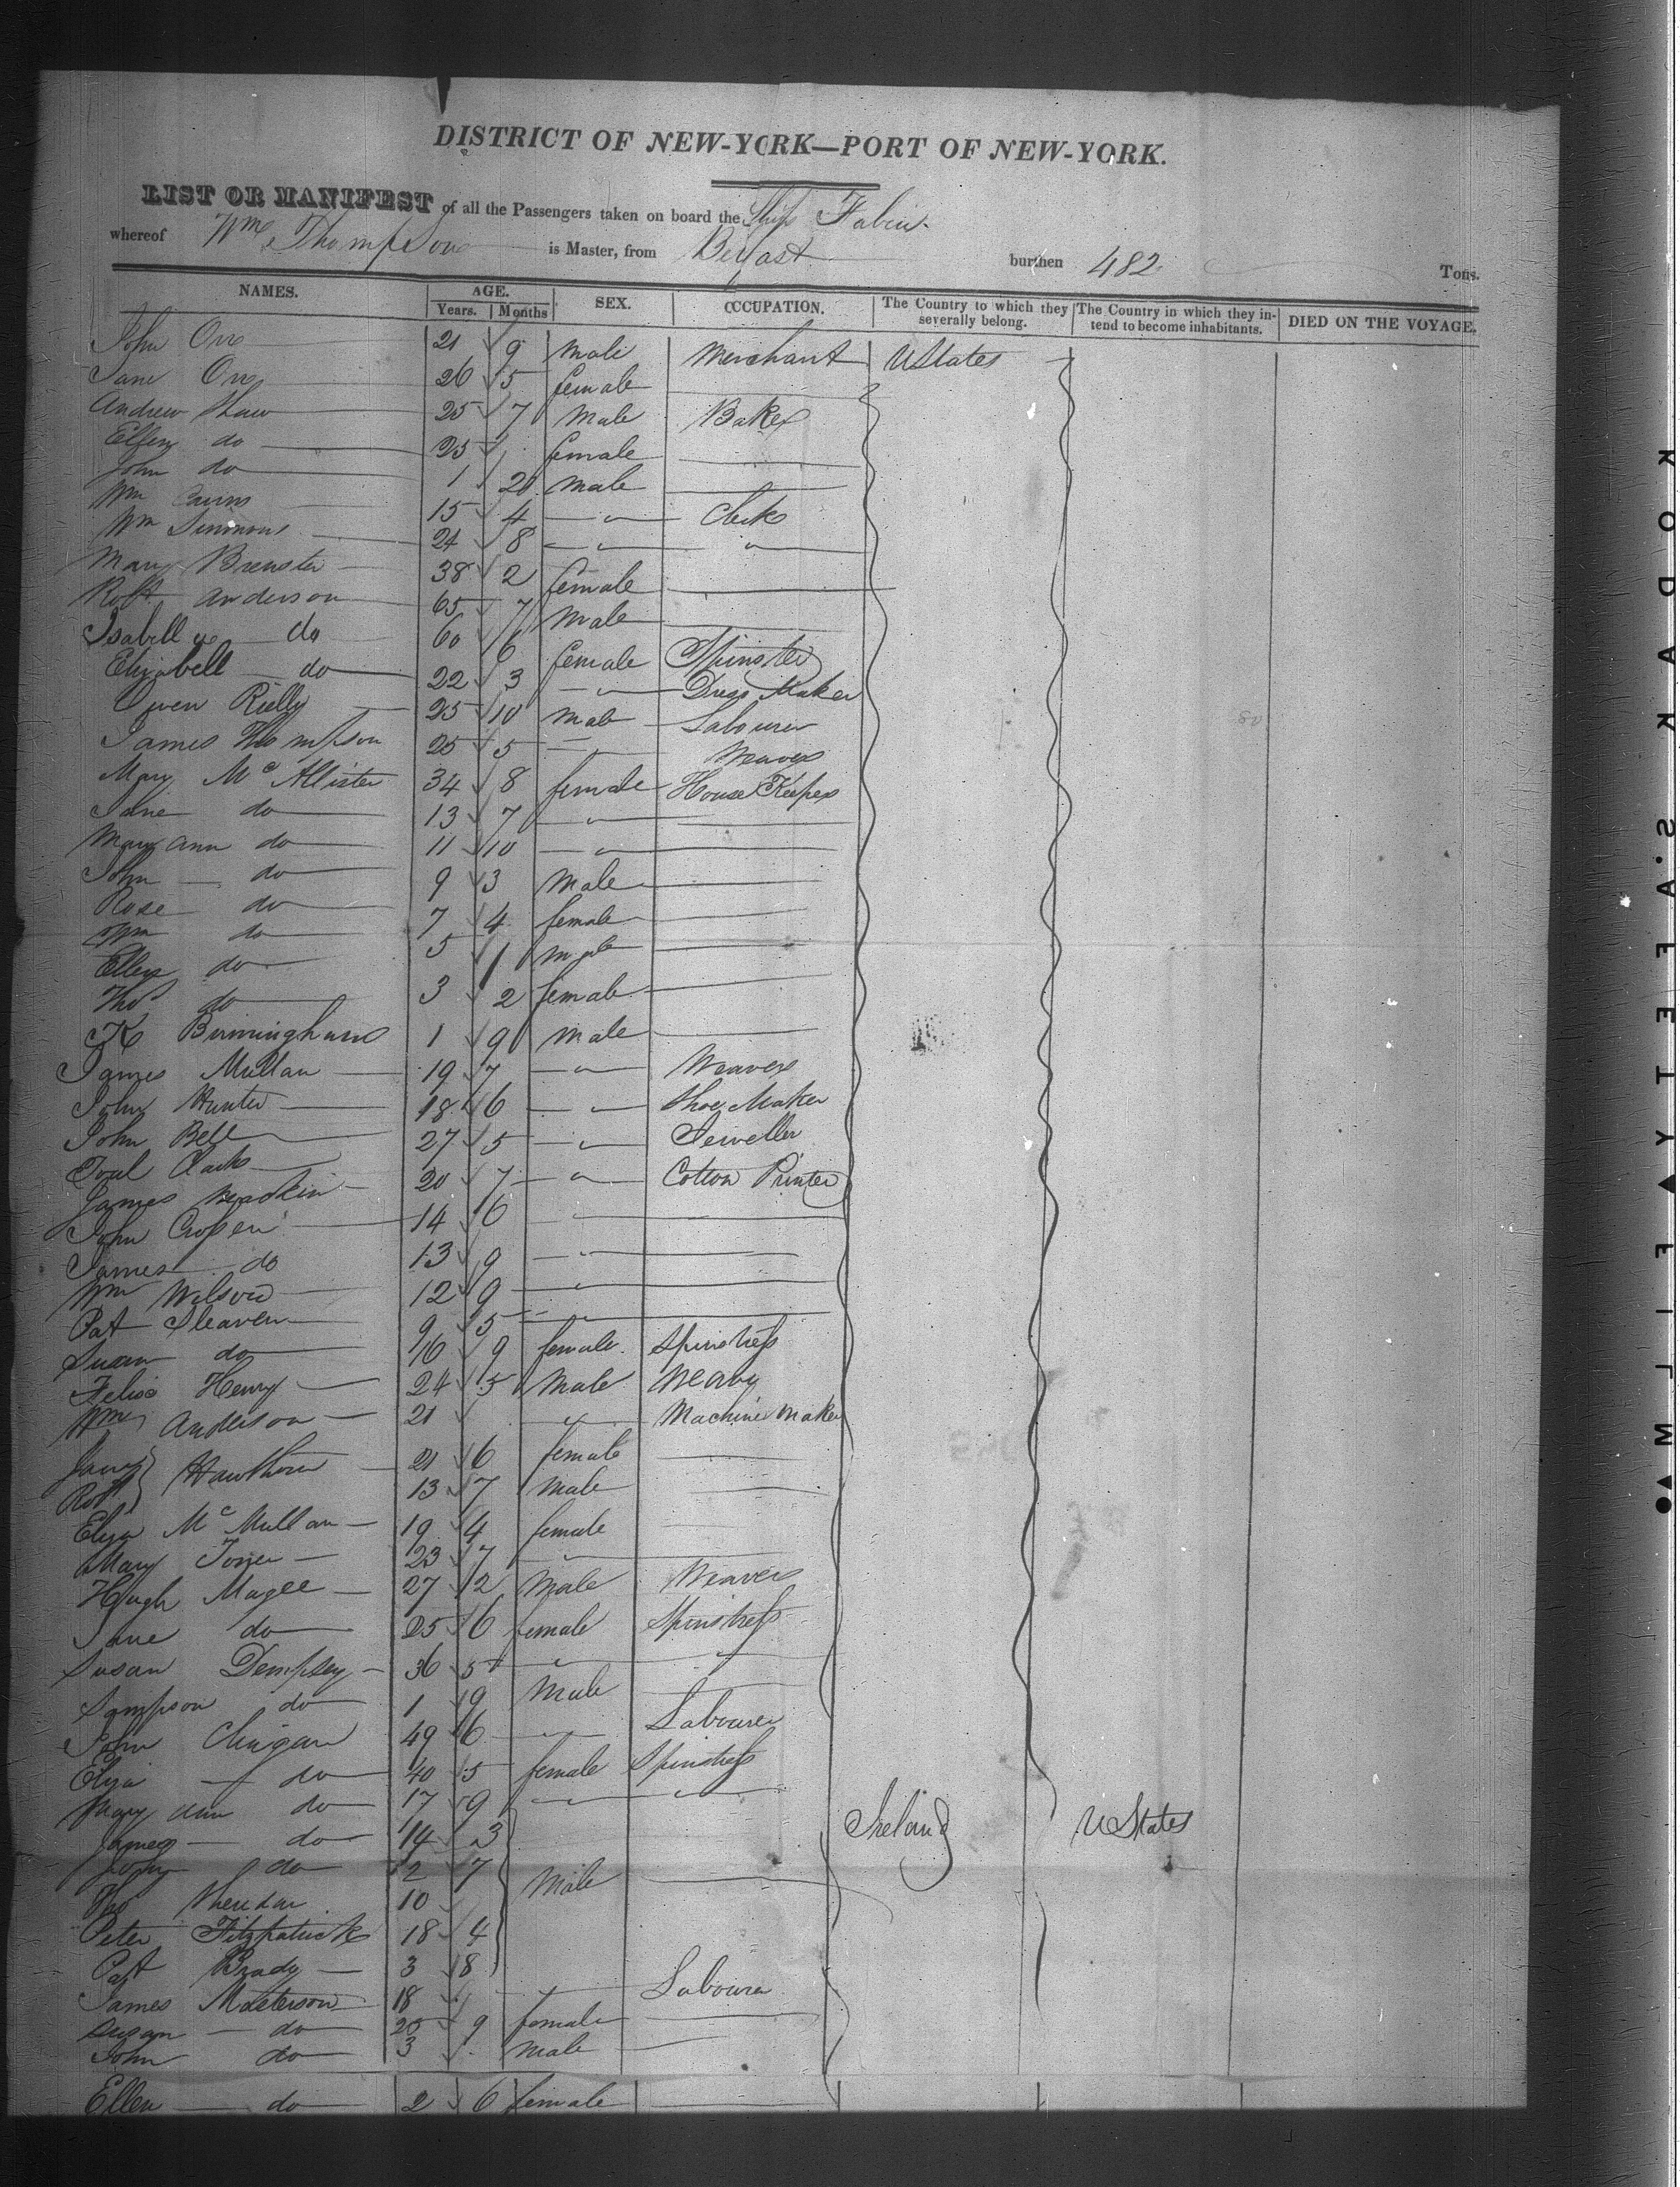 DISTRICT OF NEW-YORK—PORT OF NEW-YORK.
LIST OR MANIFEST of all the Passengers taken on board the Ship Fabius.
whereof Wm Thompson is Master, from Belfast burthen 482 Tons.
NAMES. AGE. Years. Months SEX. OCCUPATION. The Country to which they severally belong. The Country in which they intend to become inhabitants. DIED ON THE VOYAGE.
John Orr 21 9 male Merchant UStates
Jane Orr 26 5 female
Andrew Shaw 25 7 male Baker
Ellen do 25 female
John do 1 male
Wm Cairns 15 4 Clerk
Wm Simmons 24 8
Mary Brewster 38 2 female
Robt Anderson 65 7 male
Isabella do 60 6 female Spinster
do 22 3 Dress Maker
Owen Rielly 25 10 male Labourer
James Thompson 25 5 Weaver
Mary McAllister 34 8 female House Keeper
Jane do 13 7
Mary Ann do 11 10
John do 9 3 male
Rose do 7 4 female
Wm do 5 1 male
Ellen do 3 2 female
Thos do 1 9 male
Birmingham 19 7 Weaver
James Mullan 18 6 Shoe Maker
John Hunter 27 5 Jeweller
John Bell 20 7 Cotton Printer
Clark 14 6
James 13 9
John 12 9
James do 9 5
Wm Wilson
Pat Sleaven
Susan do 16 9 female Spinstress
Felix Henry 24 5 male Weaver
Wm Anderson 21 Machine Maker
Jane Hawthorn 21 6 female
Robt 13 7 male
Eliza McMullan 19 4 female
Mary 23 7
Hugh Magee 27 2 male Weaver
Jane do 25 6 female Spinstress
Susan Dempsey 36 5
Sampson do 1 9 male
John Clingan 49 6 Labourer
Eliza do 40 5 female Spinstress
Mary Ann do 17 9 Ireland UStates
James do 14 3
John do 12 7 male
Sheridan 10
Peter Fitzpatrick 18 4
Pat Brady 3 8
James Masterson 18 Labourer
Susan do 25 9 female
John do 3 male
Ellen do 2 6 female
KODAK S.A.F.E.T.Y FILM